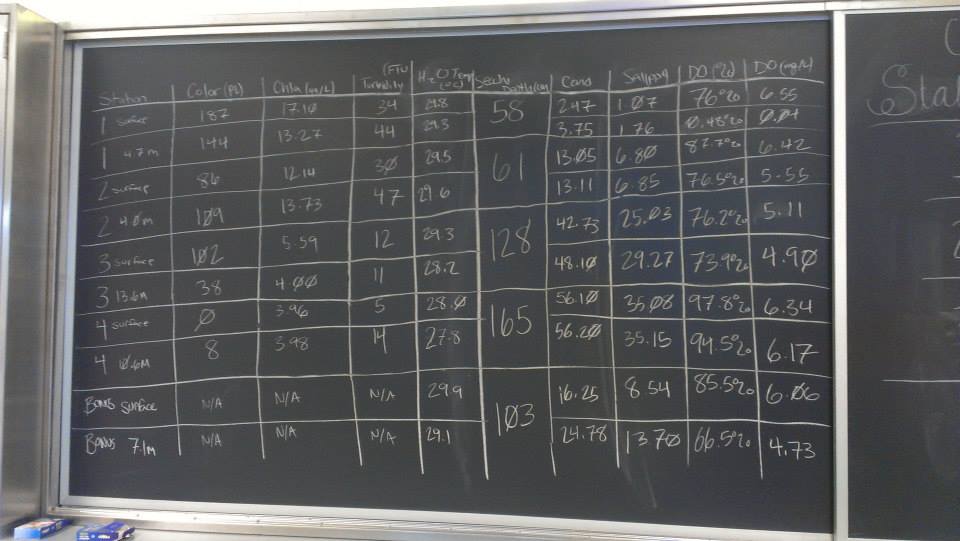 Station Color (PL) Chla (ug/L) (FTU Turbidity H2O Temp (°C) Secchi Depth (cm) Cond Sal (ppt) DO (%) DO (mg/L)
1 surface 187 17.10 34 29.8 58 2.47 1.07 76% 6.55
1 4.7m 144 13.27 44 29.3 3.75 1.76 0.48% 0.04
2 surface 86 12.14 30 29.5 61 13.05 6.80 87.7% 6.42
2 4.0m 109 13.73 47 29.6 13.11 6.85 76.5% 5.55
3 surface 102 5.59 12 29.3 128 42.73 25.03 76.2% 5.11
3 13.6m 38 4.00 11 28.2 48.10 29.27 73.9% 4.90
4 surface 0 3.96 5 28.0 165 56.10 35.08 97.8% 6.34
4 10.6M 8 3.98 14 27.8 56.20 35.15 94.5% 6.17
Bonus surface N/A N/A N/A 29.9 103 16.25 8.54 85.5% 6.06
Bonus 7.1m N/A N/A N/A 29.1 24.78 13.70 66.5% 4.73